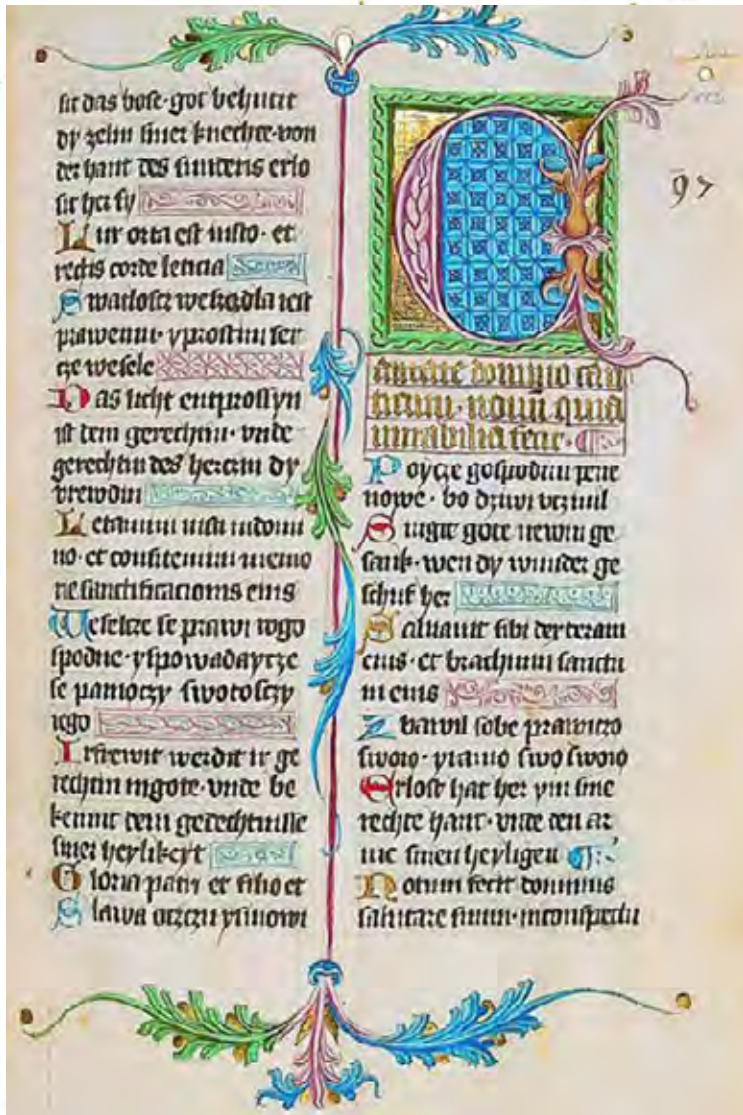 sit das bose·got behutit
dy zeln siner knechte·von
der hant des sunders erlo
sit her sy
Lux orta est iusto·et
rectis corde leticia
Swatloscz weszdla iest
prawemu·yprostim ser
cze wesele
Das licht entprossyn
ist dem gerechtin·vnde
gerechtin des herczin dy
vrewdin
Letamini iusti indomi
no·et confitemini memo
rie sanctificacionis eius
Weselcze se prawi wgo
spodne·yspowadaycze
se pamoczy swotosczy
iego
Irfrewit werdit ir ge
rechtin ingote·vnde be
kennit dem gedechtnisse
siner heylikeyt
Gloria patri et filio et
Slawa otczu ysinowi
97
Cantate domino can
ticum·nouum quia
mirabilia fecit·
Poycze gospodnu pene
nowe·bo dziwi vczinil
Singit gote newin ge
sank·wen dy wunder ge
schuf her
Saluauit sibi dextera
eius·et brachium sanctu
m eius
Zbawil sobe prawiczo
swoio·yramo swo swoio
Erlost hat her ym sine
rechte hant·vnde den ar
me sinen heyligen
Notum fecit dominus
salutare suum·inconspectu